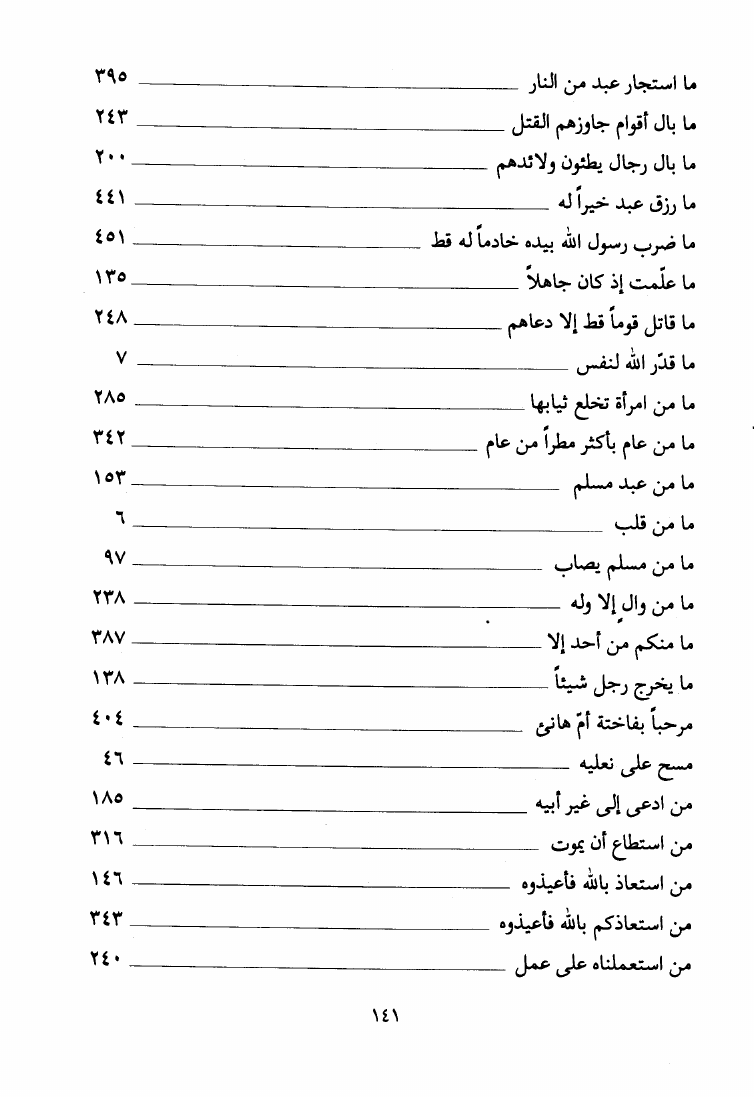 ما استجار عبد من النار ٣٩٥
ما بال أقوام جاوزهم القتل ٢٤٣
ما بال رجال يطئون ولائدهم ٢٠٠
ما رزق عبد خيراً له ٤٤١
ما ضرب رسول الله بيده خادماً له قط ٤٥١
ما علّمت إذ كان جاهلاً ١٣٥
ما قاتل قوماً قط إلا دعاهم ٢٤٨
ما قدّر الله لنفس ٧
ما من امرأة تخلع ثيابها ٢٨٥
ما من عام بأكثر مطراً من عام ٣٤٢
ما من عبد مسلم ١٥٣
ما من قلب ٦
ما من مسلم يصاب ٩٧
ما من والٍ إلا وله ٢٣٨
ما منكم من أحد إلا ٣٨٧
ما يخرج رجل شيئاً ١٣٨
مرحباً بفاختة أمّ هانئ ٤٠٤
مسح على نعليه ٤٦
من ادعى إلى غير أبيه ١٨٥
من استطاع أن يموت ٣١٦
من استعاذ بالله فأعيذوه ١٤٦
من استعاذكم بالله فأعيذوه ٣٤٣
من استعملناه على عمل ٢٤٠
١٤١